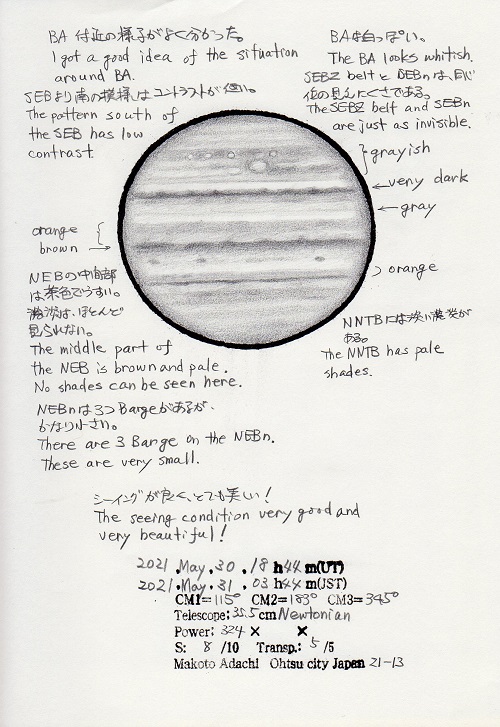 BA付近の様子がよく分かった。
I got a good idea of the situation
around BA.
SEBより南の模様はコントラストが低い。
The pattern south of
the SEB has low
contrast
BAは白っぽい。
The BA looks whitish.
SEBZ beltとSEBnは、同じ
位の見えにくさである。
The SEBZ belt and SEBn
are just as invisible.
grayish
very dark
gray
orange
brown
orange
NEBの中間部
は茶色でうすい。
濃淡は、ほとんど
見られない。
The middle part of
the NEB is brown and pale.
No shades can be seen here.
NNTBには淡い濃淡が
ある。
The NNTB has pale
shades.
NEBnは3つBargeがあるが、
かなり小さい。
There are 3 Barge on the NEBn.
These are very small.
シーイングが良く、とても美しい!
The seeing condition very good and
very beautiful!
2021.May.30.18h44m(UT)
2021.May.31.03h44m(JST)
CM1=115° CM2=183° CM3=345°
Telescope:35.5cm Newtonian
Power: 324× ×
S: 8 /10 Transp.: 5 /5
Makoto Adachi Ohtsu city Japan 21-13